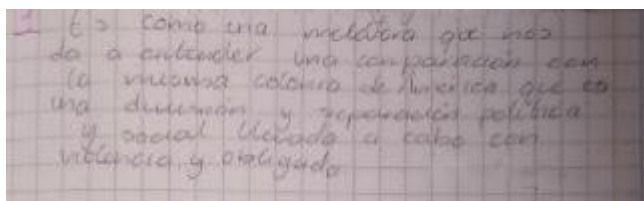 1 Es como una metáfora que nos
da a entender una comparación con
la misma colonia de América que es
una división y separación política
y social llevada a cabo con
violencia y obligada